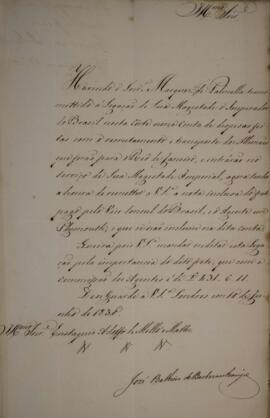 Illmo Snr.
Havendo o Snr. Marquez de Palmella trans-
mettido á Legação de Sua Magestade o Imperador
do Brasil nesta Côrte uma Conta de despezas fei-
tas com o recrutamento e transporte de Allemaens
que forão para o Rio de Janeiro, e entrárão no
serviço de Sua Magestade Imperial, agora tenho
a honra de remetter a V.Sa. a nota inclusa do
pago pelo Vice Consul do Brasil, e Agente em
Plymouth, que não incluiu na dita conta.
Queira pois V.Sa. mandar creditar esta Lega-
ção pela importancia do dito que com a
commissão dos Agentes é de £431. 6. 11.
Deos Guarde a V.Sa. Londres em 18 de
de 1836.
Illmo Snr. Eustaquio Adolfo de Mello e Mattos
José Balbino de Barboza Araujo